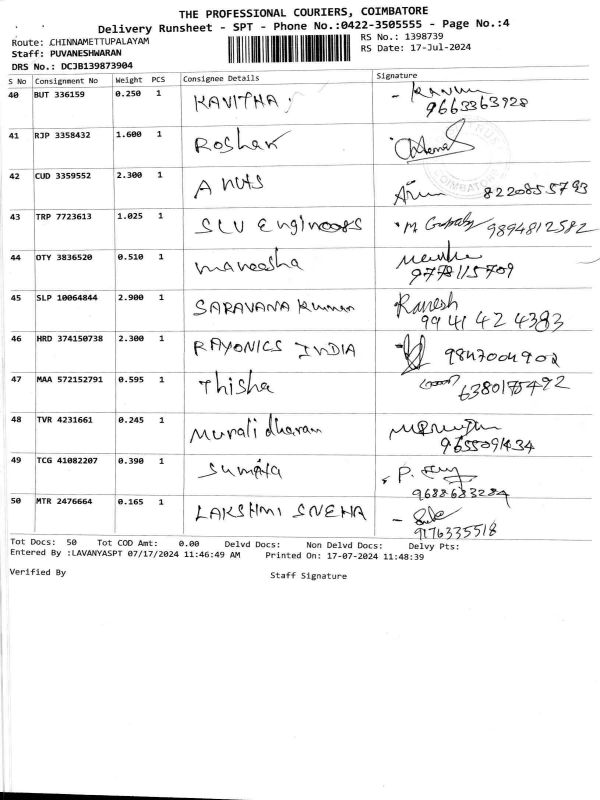 THE PROFESSIONAL COURIERS, COIMBATORE
Delivery Runsheet - SPT - Phone No.:0422-3505555 - Page No.:4
Route: CHINNAMETTUPALAYAM RS No.: 1398739
Staff: PUVANESHWARAN RS Date: 17-Jul-2024
DRS No.: DCJB139873904
S No Consignment No Weight PCS Consignee Details Signature
40 BUT 336159 0.250 1 KAVITHA
9663363928
41 RJP 3358432 1.600 1 Roshan
COIMBATORE
42 CUD 3359552 2.300 1 Arun 8220855793
43 TRP 7723613 1.025 1 SLV Engineers 9894812582
44 OTY 3836520 0.510 1 maneesha
9778115709
45 SLP 10064844 2.900 1 SARAVANA Kumar Ramesh
99 41 42 4383
46 HRD 374150738 2.300 1 RAYONICS INDIA 9847004902
47 MAA 572152791 0.595 1 Thisha 6380175492
48 TVR 4231661 0.245 1 Murali dharan
9655091434
49 TCG 41082207 0.390 1
9688683284
50 MTR 2476664 0.165 1 LAKSHMI SNEHA
9176335518
Tot Docs: 50 Tot COD Amt: 0.00 Delvd Docs: Non Delvd Docs: Delvy Pts:
Entered By :LAVANYASPT 07/17/2024 11:46:49 AM Printed On: 17-07-2024 11:48:39
Verified By Staff Signature